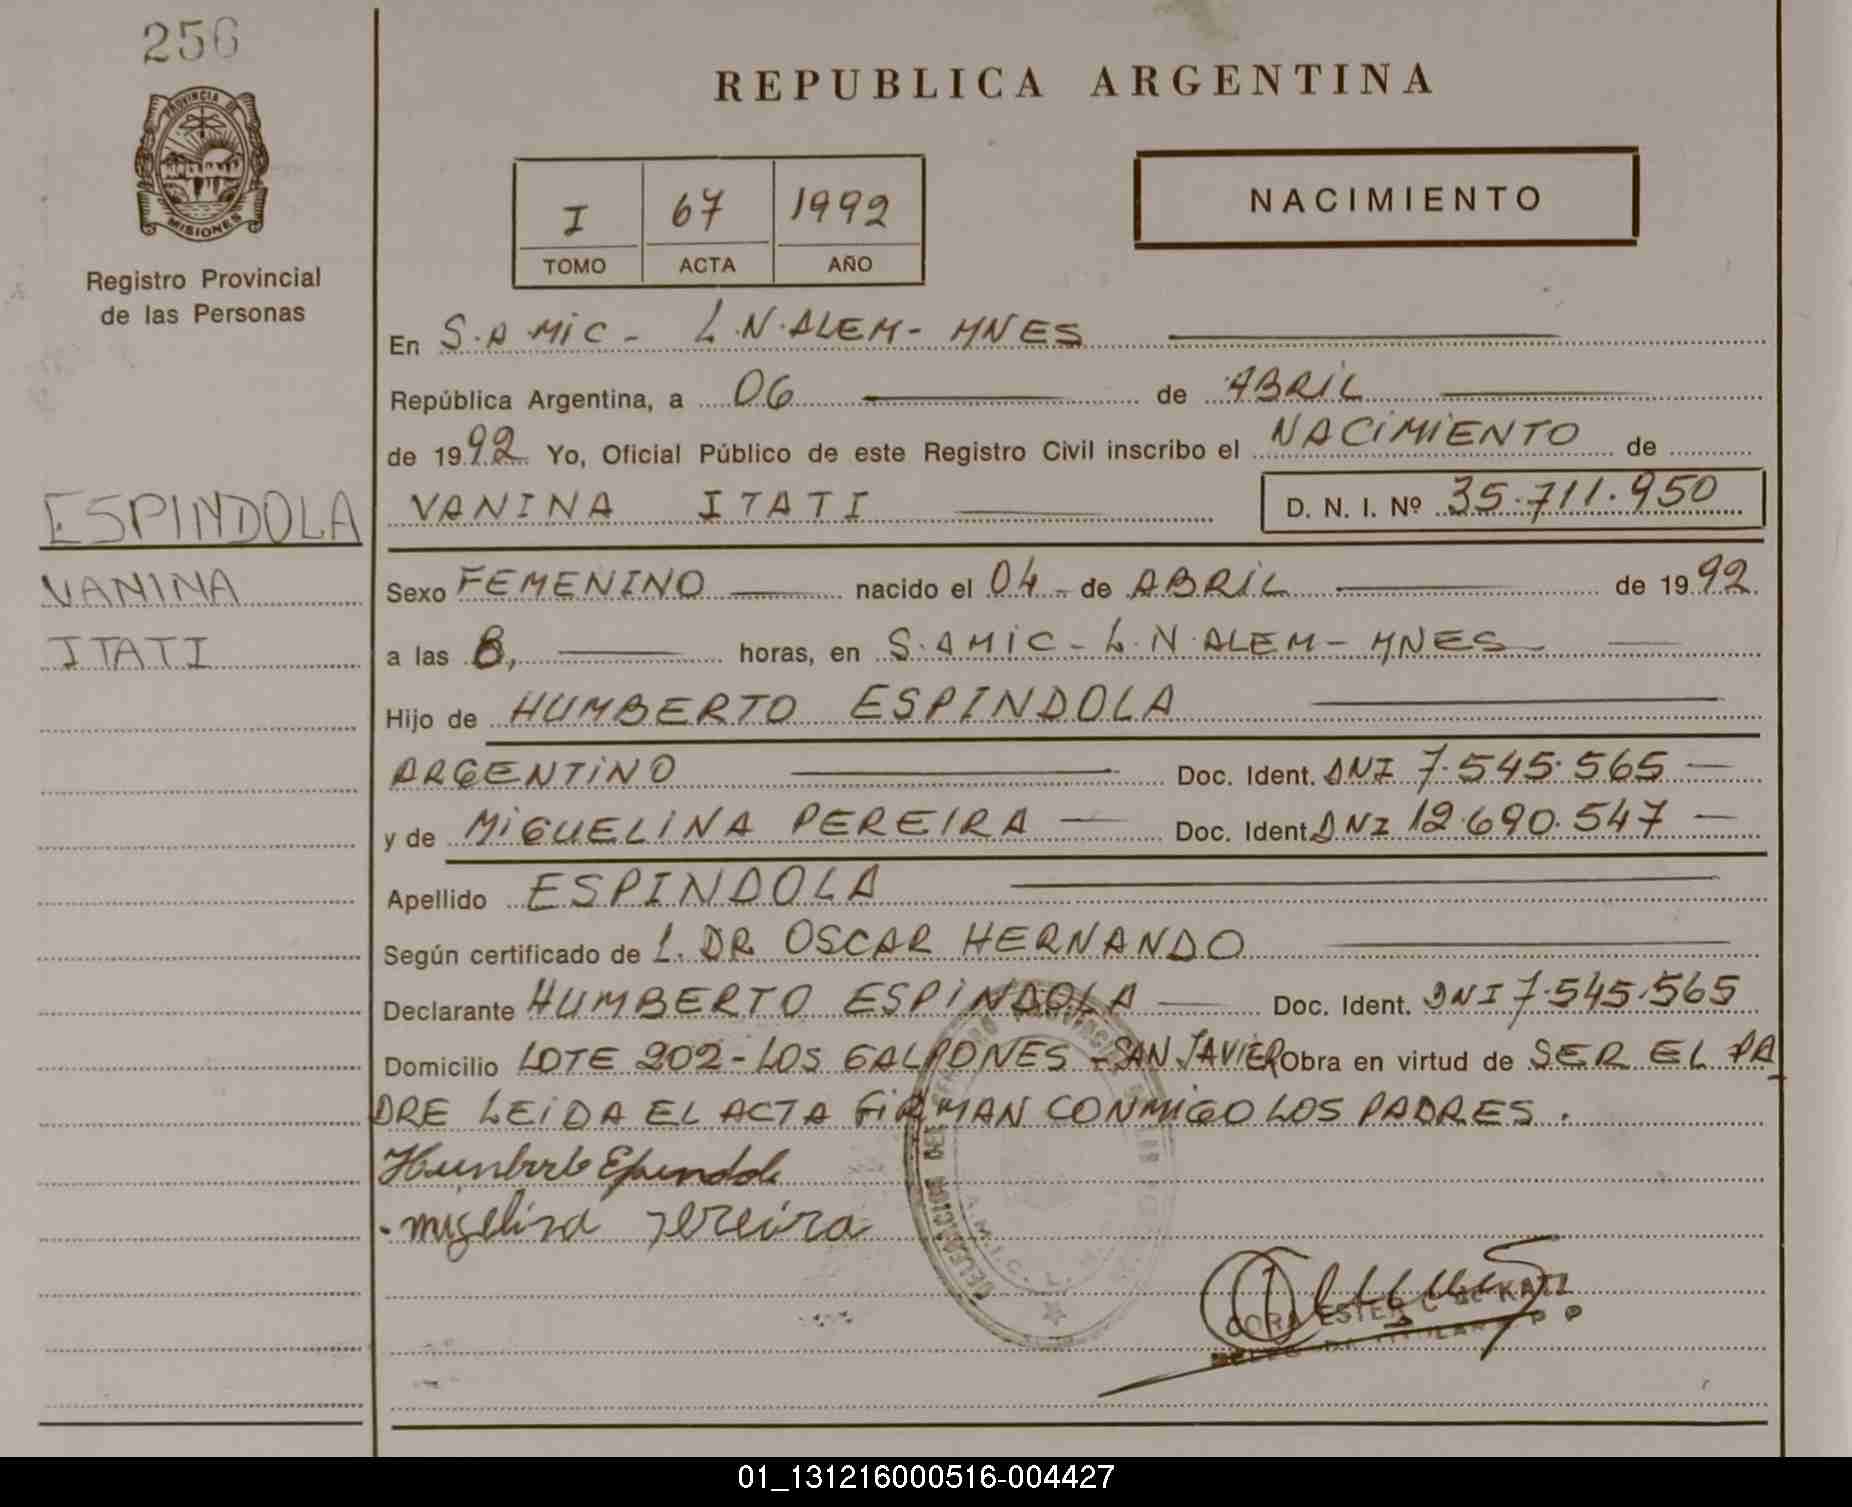 256
PROVINCIA DE
MISIONES
Registro Provincial
de las Personas
REPUBLICA ARGENTINA
I 67 1992
TOMO ACTA AÑO
NACIMIENTO
En S.A MIC - L.N.ALEM - MNES
República Argentina, a 06 de ABRIL
de 1992 Yo, Oficial Público de este Registro Civil inscribo el NACIMIENTO de
VANINA ITATI D. N. I. Nº 35.711.950
ESPINDOLA
VANINA
ITATI
Sexo FEMENINO nacido el 04 - de ABRIL de 1992
a las 8, horas, en S.AMIC - L.N.ALEM - MNES
Hijo de HUMBERTO ESPINDOLA
ARGENTINO Doc. Ident. DNI 7.545.565
y de MIGUELINA PEREIRA Doc. Ident. DNI 12.690.547
Apellido ESPINDOLA
Según certificado de L. DR OSCAR HERNANDO
Declarante HUMBERTO ESPINDOLA Doc. Ident. DNI 7.545.565
Domicilio LOTE 202 - LOS GALPONES - SAN JAVIER Obra en virtud de SER EL PA
DRE LEIDA EL ACTA FIRMAN CONMIGO LOS PADRES.
Humberto Espindola
Migelina Pereira
DELEGACION DEL
CORA ESTER C de KATZ
TITULAR R P P
01_131216000516-004427